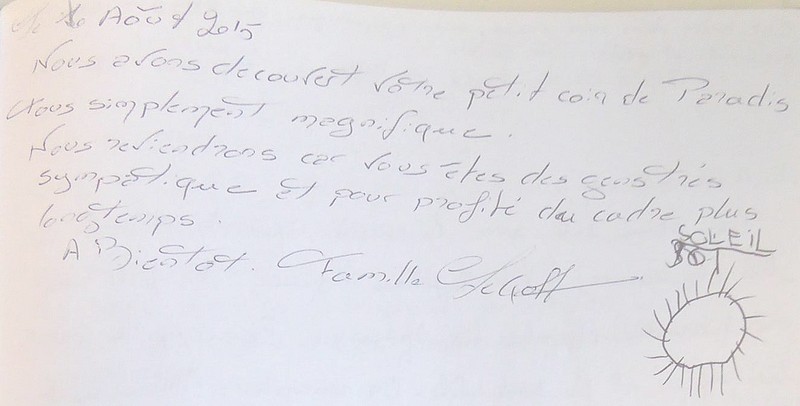 Août 2015
Nous avons decouvert vôtre pétit coin de Paradis
tous simplement magnifique.
Nous reviendrons car vous êtes des gens très
sympatique et pour profité du cadre plus
longtemps.
A Bientôt. Famille
SOLEIL